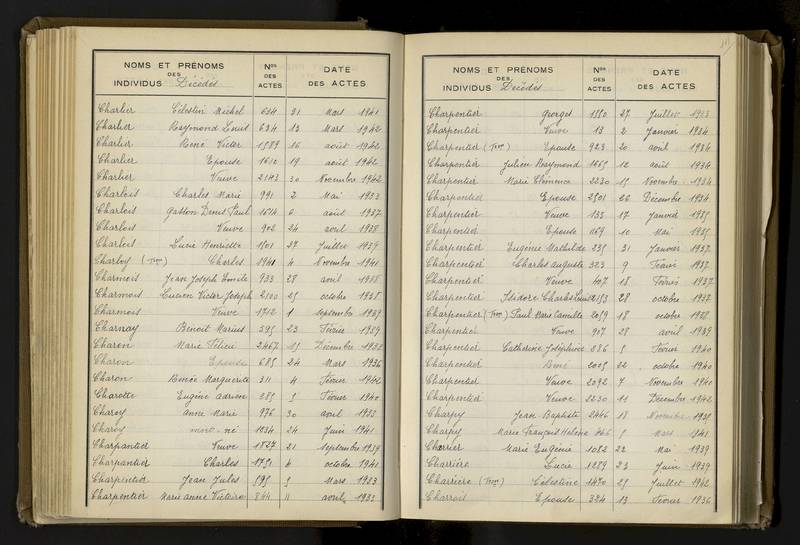 NOMS ET PRÉNOMS
DES
INDIVIDUS Décédés
Nos
DES
ACTES
DATE
DES ACTES
Charlier Célestin Michel 654 21 Mars 1941
Charlier Raymond Louis 634 13 Mars 1942
Charlier René Victor 1589 16 août 1942
Charlier Epouse 1610 19 août 1942
Charlier Veuve 2143 30 Novembre 1942
Charlois Charles Marie 991 2 Mai 1933
Charlois Gaston Denis Paul 1614 6 août 1937
Charlois Veuve 902 24 avril 1938
Charlois Lucie Henriette 1501 27 Juillet 1939
Charloy Charles 1940 4 Novembre 1941
Charmois Jean Joseph Emile 933 28 avril 1938
Charmois Lucien Victor Joseph 2100 25 octobre 1938
Charmois Veuve 1712 1 septembre 1939
Charnay Benoit Marius 395 23 Février 1939
Charon Marie 2467 15 Décembre 1935
Charon Epouse 685 24 Mars 1936
Charon Marguerite 311 4 Février 1942
Charotte Eugène Adrien 285 5 Février 1940
Charoy Anne Marie 976 30 avril 1933
Charoy mort-né 1234 24 Juin 1941
Charpantier Veuve 1827 21 septembre 1939
Charpantier Charles 1751 4 octobre 1941
Charpentier Jean Jules 595 5 Mars 1933
Charpentier Marie Anne 844 11 avril 1933
NOMS ET PRÉNOMS
DES
INDIVIDUS Décédés
Nos
DES
ACTES
DATE
DES ACTES
Charpentier Georges 1550 27 Juillet 1933
Charpentier Veuve 13 2 Janvier 1934
Charpentier Epouse 923 20 avril 1934
Charpentier Julien Raymond 1665 12 août 1934
Charpentier Marie Clémence 2230 15 Novembre 1934
Charpentier Epouse 2501 26 Décembre 1934
Charpentier Veuve 135 17 Janvier 1935
Charpentier Epouse 1169 10 Mai 1935
Charpentier Eugénie Mathilde 235 31 Janvier 1937
Charpentier Charles Auguste 323 9 Février 1937
Charpentier Veuve 407 18 Février 1937
Charpentier Isidore Charles 2153 28 octobre 1937
Charpentier Paul Marie Camille 2059 18 octobre 1938
Charpentier Veuve 917 28 avril 1939
Charpentier Catherine Joséphine 286 5 Février 1940
Charpentier 2005 22 octobre 1940
Charpentier Veuve 2092 7 Novembre 1940
Charpentier Veuve 2230 11 Décembre 1942
Charpy Jean Baptiste 2446 18 Novembre 1935
Charpy Marie Françoise Hélène 466 5 Mars 1941
Charrier Marie Eugénie 1082 22 Mai 1939
Charrière Lucie 1289 23 Juin 1939
Charrière Célestine 1470 25 Juillet 1942
Charroit Epouse 384 13 Février 1936